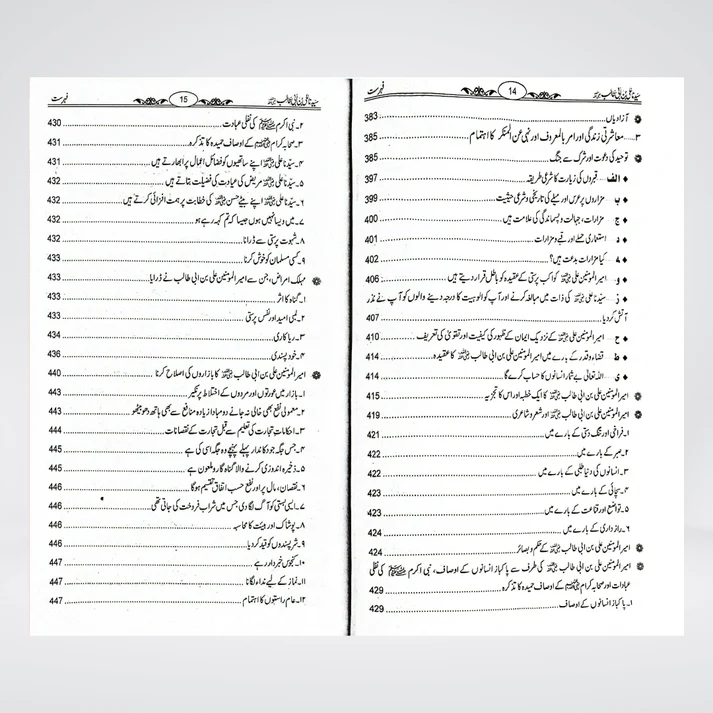 فہرست 14 سیدنا علی بن ابی طالب رضی اللہ عنہ
آزادیاں 383
۳ معاشرتی زندگی اور امر بالمعروف اور نہی عن المنکر کا اہتمام 385
توحید کی دعوت اور شرک سے جنگ 385
الف قبروں کی زیارت کا شرعی طریقہ 397
ب مزاروں پر عرس اور میلے کی تاریخی و شرعی حیثیت 399
ج مزارات، جہالت و پسماندگی کی علامت ہیں 400
د استعماری حملے اور قبے و مزارات 401
ھ کیا مزارات بدعت ہیں؟ 402
و امیر المومنین علی بن ابی طالب رضی اللہ عنہ کواکب پرستی کے عقیدہ کو باطل قرار دیتے ہیں 406
ز سیدنا علی رضی اللہ عنہ کی ذات میں مبالغہ کرنے اور آپ کو الوہیت کا درجہ دینے والوں کو آپ نے نذر
آتش کر دیا 407
ح امیر المومنین علی بن ابی طالب رضی اللہ عنہ کے نزدیک ایمان کے ظہور کی کیفیت اور تقویٰ کی تعریف 410
ط قضاء و قدر کے بارے میں امیر المومنین علی بن ابی طالب رضی اللہ عنہ کا عقیدہ 414
ی اللہ تعالیٰ بے شمار انسانوں کا حساب کرے گا 414
امیر المومنین علی بن ابی طالب رضی اللہ عنہ کا ایک خطبہ اور اس کا تجزیہ 415
امیر المومنین علی بن ابی طالب رضی اللہ عنہ اور شعر و شاعری 419
۱۔ فراخی اور تنگ دستی کے بارے میں 421
۲۔ صبر کے بارے میں 422
۳۔ انسانوں کی دنیا طلبی کے بارے میں 422
۴۔ سچائی کے بارے میں 423
۵۔ تواضع اور قناعت کے بارے میں 423
۶۔ رازداری کے بارے میں 424
امیر المومنین علی بن ابی طالب رضی اللہ عنہ کے حکم و بصائر 424
امیر المومنین علی بن ابی طالب رضی اللہ عنہ کی طرف سے پاکباز انسانوں کے اوصاف، نبی اکرم ﷺ کی نفلی
عبادات اور صحابہ کرام رضی اللہ عنہم کے اوصاف حمیدہ کا تذکرہ 429
۱۔ پاکباز انسانوں کے اوصاف 429
فہرست 15 سیدنا علی بن ابی طالب رضی اللہ عنہ
۲۔ نبی اکرم ﷺ کی نفلی عبادت 430
۳۔ صحابہ کرام رضی اللہ عنہم کے اوصاف حمیدہ کا تذکرہ 431
۴۔ سیدنا علی رضی اللہ عنہ اپنے ساتھیوں کو فضائل اعمال پر ابھارتے ہیں 431
۵۔ سیدنا علی رضی اللہ عنہ مریض کی عیادت کی فضیلت بتاتے ہیں 432
۶۔ سیدنا علی رضی اللہ عنہ اپنے بیٹے حسن رضی اللہ عنہ کی خطابت پر ہمت افزائی کرتے ہیں 432
۷۔ میں ویسا نہیں ہوں جیسا کہ تم کہہ رہے ہو 432
۸۔ شہوت پرستی سے ڈرانا 432
۹۔ کسی مسلمان کو خوش کرنا 433
مہلک امراض، جن سے امیر المومنین علی بن ابی طالب نے ڈرایا 433
۱۔ گناہ کا اثر 433
۲۔ لمبی امید اور نفس پرستی 433
۳۔ ریاکاری 434
۴۔ خود پسندی 436
امیر المومنین علی بن ابی طالب رضی اللہ عنہ کا بازاروں کی اصلاح کرنا 440
۱۔ بازار میں عورتوں اور مردوں کے اختلاط پر نکیر 443
۲۔ معمولی نفع بھی خالی نہ جانے دو مبادا زیادہ منافع سے بھی ہاتھ دھو بیٹھو 443
۳۔ احکامات تجارت کی تعلیم سے قبل تجارت کے نقصانات 444
۴۔ جس جگہ جو دکاندار پہلے پہنچے وہ جگہ اسی کی ہے 445
۵۔ ذخیرہ اندوزی کرنے والا گناہ گار و ملعون ہے 445
۶۔ نقصان، مال پر اور نفع حسب اتفاق تقسیم ہوگا 446
۷۔ ایسی بستی کو آگ لگا دی جس میں شراب فروخت کی جاتی تھی 446
۸۔ پوشاک اور ہیئت کا محاسبہ 446
۹۔ شرپسندوں کو قید کر دیا 446
۱۰۔ کنجوس خبردار رہے 447
۱۱۔ نماز کے لیے ندا لگانا 447
۱۲۔ عام راستوں کا اہتمام 447